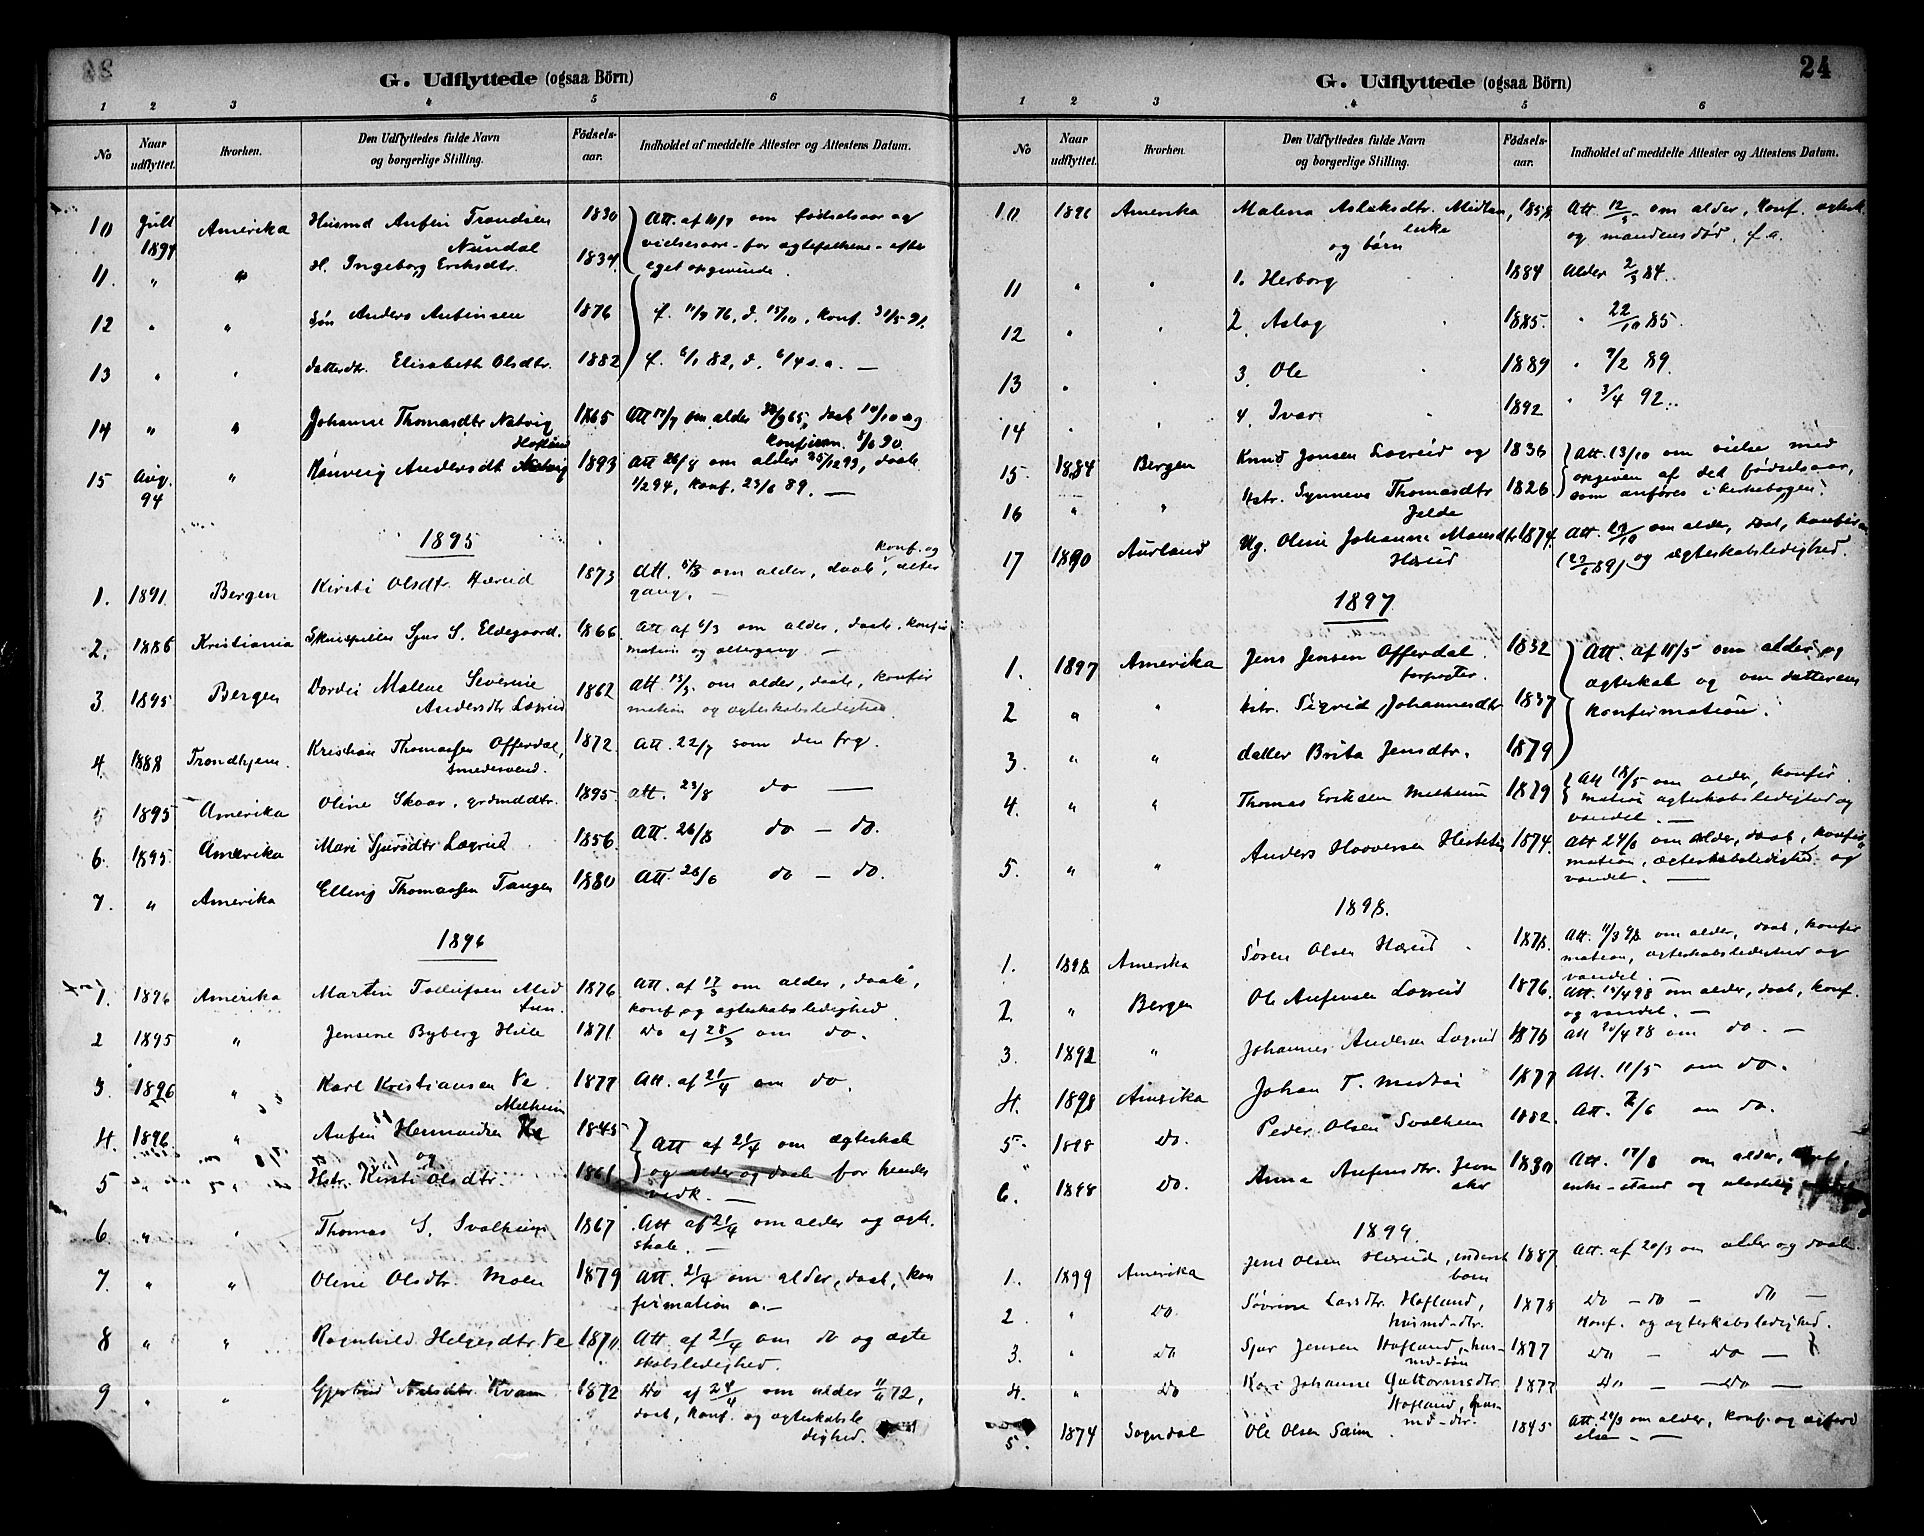 G. Udflyttede (ogsaa Börn)
1 2 3 4 5 6
No Naar udflyttet. Hvorhen. Den Udflyttedes fulde Navn og borgerlige Stilling. Födsels-aar. Indholdet af meddelte Attester og Attestens Datum.
10 Juli 1894 Amerika Husmd Anfin Trondsen Nundal 1830 Att. af om födselsaar og
vielsesaar for egtefolkene efter
11. " " H. Ingeborg Eriksdtr. 1834 eget opgivende.
12 " " sön Anders Anfinsen 1876 f. 11/9 76, d. 15/10, konf. 91.
13 " " datterdtr. Elisabeth Olsdtr. 1882 f. 6/1 82, d. 6/4 s.a. —
14 " " Johanne Thomasdtr Natvig 1865 Att om alder 65, daab 10/10 og
konfirm. 8/6 90.
15 Aug. 94 " Andersdt Hofland 1893 Att 26/8 om alder 25/12 93, daab
1/2 94, konf. 23/6 89. —
1895
1. 1891 Bergen Kirsti Olsdtr. Hæreid 1873 Att. om alder, daab, konf. og alter
gang. —
2. 1886 Kristiania Skuespiller Sjur S. Eldegaard. 1866 Att af 6/3 om alder, daab, konfir
mation og altergang —
3 1895 Bergen Dordei Malene Severine
Andersdtr Lægreid 1862 Att. om alder, daab, konfir
mation og ægteskabsledighed.
4. 1888 Trondhjem. Kristian Thomassen Offerdal,
smedesvend. 1872. Att. 22/7 som den frg.
5 1895 Amerika Oline Skaar, grdmddtr. 1895 Att. 23/8 do —
6. 1895. Amerika Mari Sjursdtr Lægreid 1856. Att. 26/8 do — do.
7. " Amerika Elling Thomassen Tangen 1880 Att. 26/6 do — do.
1896
1. 1896 Amerika Martin Tollefsen Med
1876 Att. af 17/3 om alder, daab,
konf. og ægteskabsledighed.
2 1895 " Jensine Byberg Hille 1871 Do af 28/3 om do.
3 1896 " Karl Kristiansen Ve 1877 Att. af 21/4 om do.
4. 1896. " Anfin Hermundsen Melheim 1845 Att af 21/4 om ægteskab
og
5 " " Hstr. Kirsti Olsdtr. 1861 og alder og daab for hendes
vedk. —
6. " " Thomas S. Svalheim 1867 Att af 21/4 om alder og ægte
skab. —
7. " " Oline Olsdtr. Molen 1879 Att. 21/4 om alder, daab, kon
firmation —
8 " " Ragnhild Helgesdtr. Ve 1870. Att. af 21/4 om do og ægte
skabsledighed.
9 " " Gjertrud Kvam 1872 Do af 24/4 om alder 72,
daab, konf. og ægteskabsle
dighed.
G. Udflyttede (ogsaa Börn) 24
1 2 3 4 5 6
No Naar udflyttet. Hvorhen. Den Udflyttedes fulde Navn og borgerlige Stilling. Födsels-aar. Indholdet af meddelte Attester og Attestens Datum.
10 1896 Amerika Malena Aslaksdtr. 1858 Att. 12/5 om alder, konf. ægtesk.
enke
og börn og mandens död.
11 " " 1. Herborg 1884 Alder 2/3 84.
12 " " 2. Aslag 1885. " 22/10 85.
13 " " 3. Ole 1889 " 9/2 89.
14 " " 4. Ivar 1892 " 3/4 92.
15. 1884 Bergen Knud Jonsen Lægreid og 1836 Att. 13/10 om vielse med
opgiven af det födselsaar,
16 " " Hstr. Synneva Thomasdtr
Jelde 1826 som anföres i kirkebogen.
17 1890 Aurland Ug. Oline Johanne Monsdtr
Hæreid 1874. Att. 29/10 om alder, daab, konfirm
og ægteskabsledighed.
1897
1. 1897 Amerika Jens Jensen Offerdal
forpagter. 1832 Att. af 18/5 om alder og
2 " " hstr. Sigrid Johannesdtr 1837 ægteskab og om datterens
konfirmation.
3. " " datter Brita Jensdtr. 1879
4. " " Thomas Eriksen Melheim 1879 Att 18/5 om alder, konfir
mation ægteskabsledighed og
vandel. —
5. " " Anders 1874. Att 24/6 om alder, daab, konfir
mation, ægteskabsledighed og
vandel. —
1898.
1. 1898 Amerika Sören Olsen Hæreid 1878. Att. 11/3 98 om alder, daab, konfir
mation, ægteskabsledighed og
vandel. —
2. " Bergen Ole Anfinsen Lægreid 1876. Att. 4 98 om alder, daab, konf.
og vandel. —
3. 1892 " Johannes Andersen Lægreid 1876 Att 4 98 om do. —
4. 1898 Amerika Johan T. 1877 Att. 11/5 om do.
5 1898 Do. Peder Olsen Svalheim 1882. Att. 6 om do.
6. 1898 Do. Anna Anfinsdtr. 1830 Att. 17/8 om alder,
enke-stand og
1899.
1. 1899 Amerika Jens Olsen Hæreid, inderst
barn 1887 Att. af 20/3 om alder og daab.
2. " Do Sövrine Larsdtr. Hofland,
husmd-dtr. 1878 Do — do — do —
konf. og ægteskabsledighed.
3. " Do Sjur Jensen Hofland, hus
md-sön 1877 Do — do —
4. " Do Kari Johanne Guttormsdtr.
Hofland, hus
md-dtr. 1877 do — do —
5. 1874 Sogndal Ole Olsen 1845 Att. 20/3 om alder, konf. og